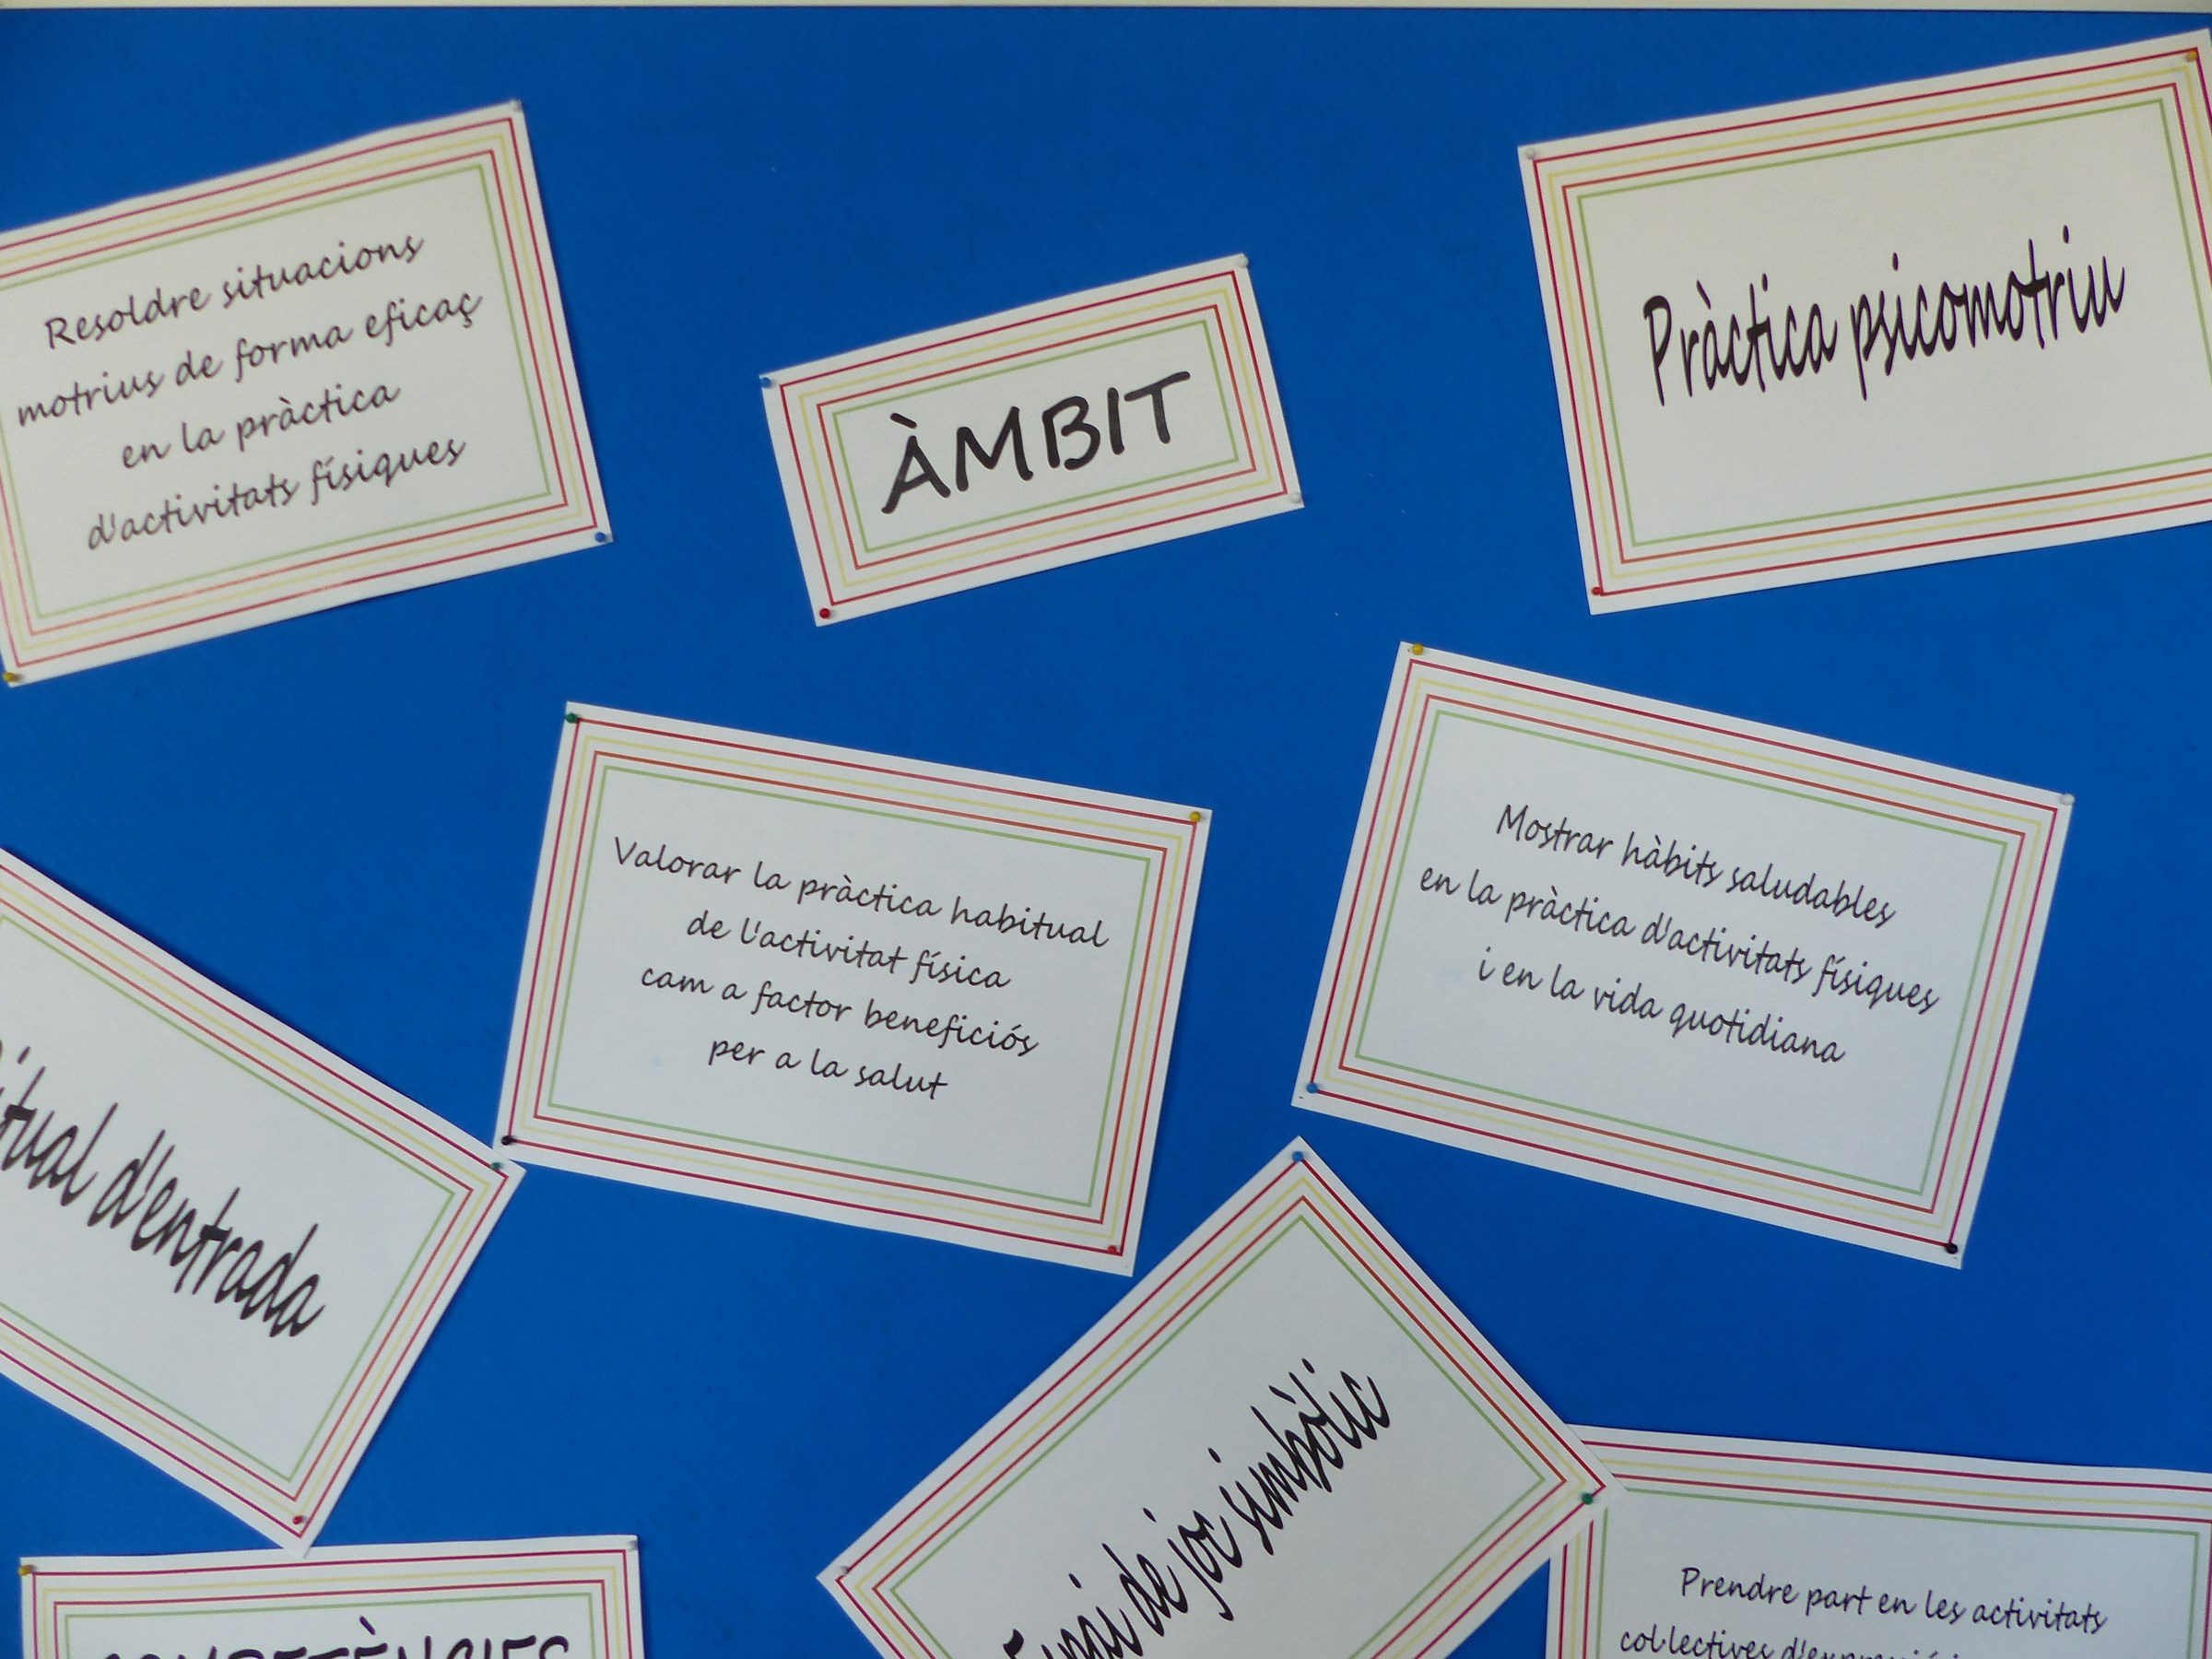 Resoldre situacions
motrius de forma eficaç
en la pràctica
d'activitats físiques
ÀMBIT
Pràctica psicomotriu
Valorar la pràctica habitual
de l'activitat física
cam a factor beneficiós
per a la salut
Mostrar hàbits saludables
en la pràctica d'activitats físiques
i en la vida quotidiana
d'entrada
de joc simbòlic
Prendre part en les activitats
col·lectives